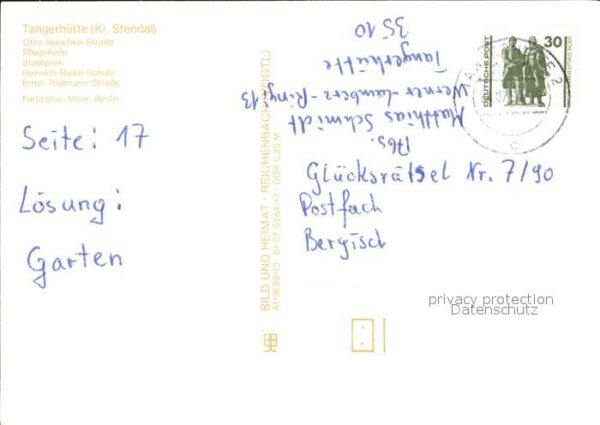 Tangerhütte (Kr. Stendal)
Otto-Nuschke-Straße
Pflegeheim
Stadtpark
Heinrich-Rieke-Schule
Ernst-Thälmann-Straße
Farbfotos: Mohr, Berlin
Seite: 17
Lösung:
Garten
BILD UND HEIMAT · REICHENBACH (VOGTL)
A1/III/26/13 01 07 0264/17 · DDR 0,20 M
Abs.
Matthias Schmidt
Werner-Lamberz-Ring 13
Tangerhütte
3510
DEUTSCHE POST
30
2
c
Glücksrätsel Nr. 7/90
Postfach
Bergisch
privacy protection
Datenschutz